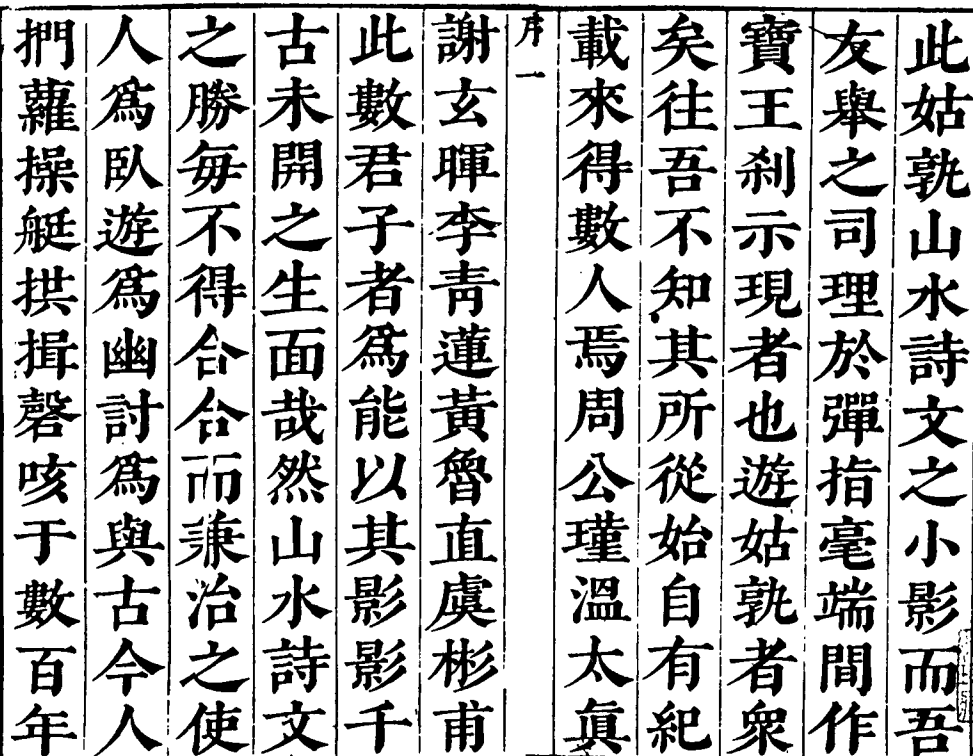 此姑孰山水詩文之小影而吾
友舉之司理於彈指毫端間作
寶王剎示現者也遊姑孰者衆
矣往吾不知其所從始自有紀
載來得數人焉周公瑾溫太眞
序一
謝玄暉李靑蓮黃魯直虞彬甫
此數君子者爲能以其影影千
古未開之生面哉然山水詩文
之勝每不得合合而兼治之使
人爲臥遊爲幽討爲與古今人
捫蘿操艇拱揖磬咳于數百年